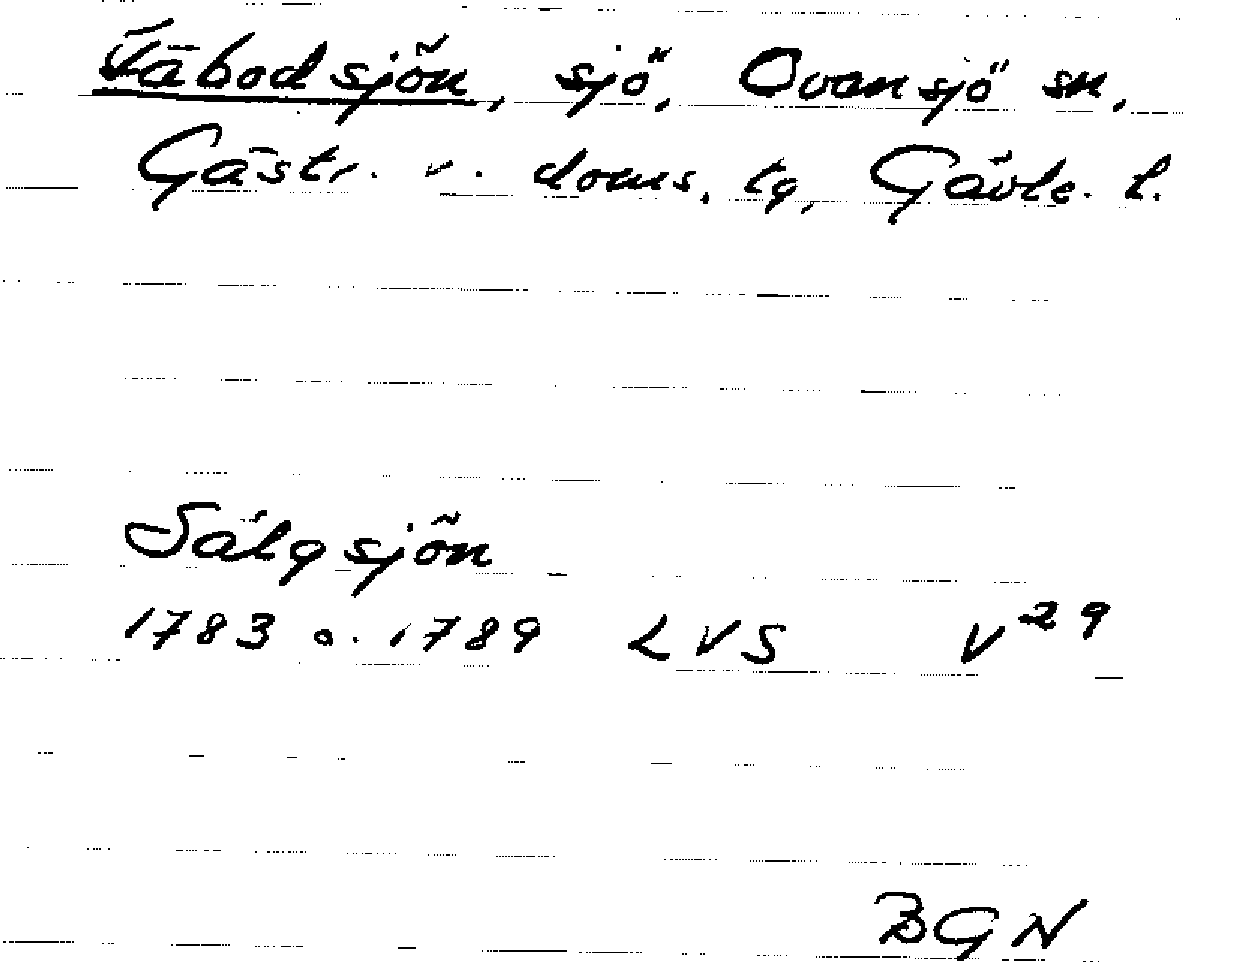 Fäbodsjön, sjö, Ovansjö sn,
Gästr. v. doms. tg, Gävle. l.
Sälgsjön
1783 o. 1789 LVS V29
BGN